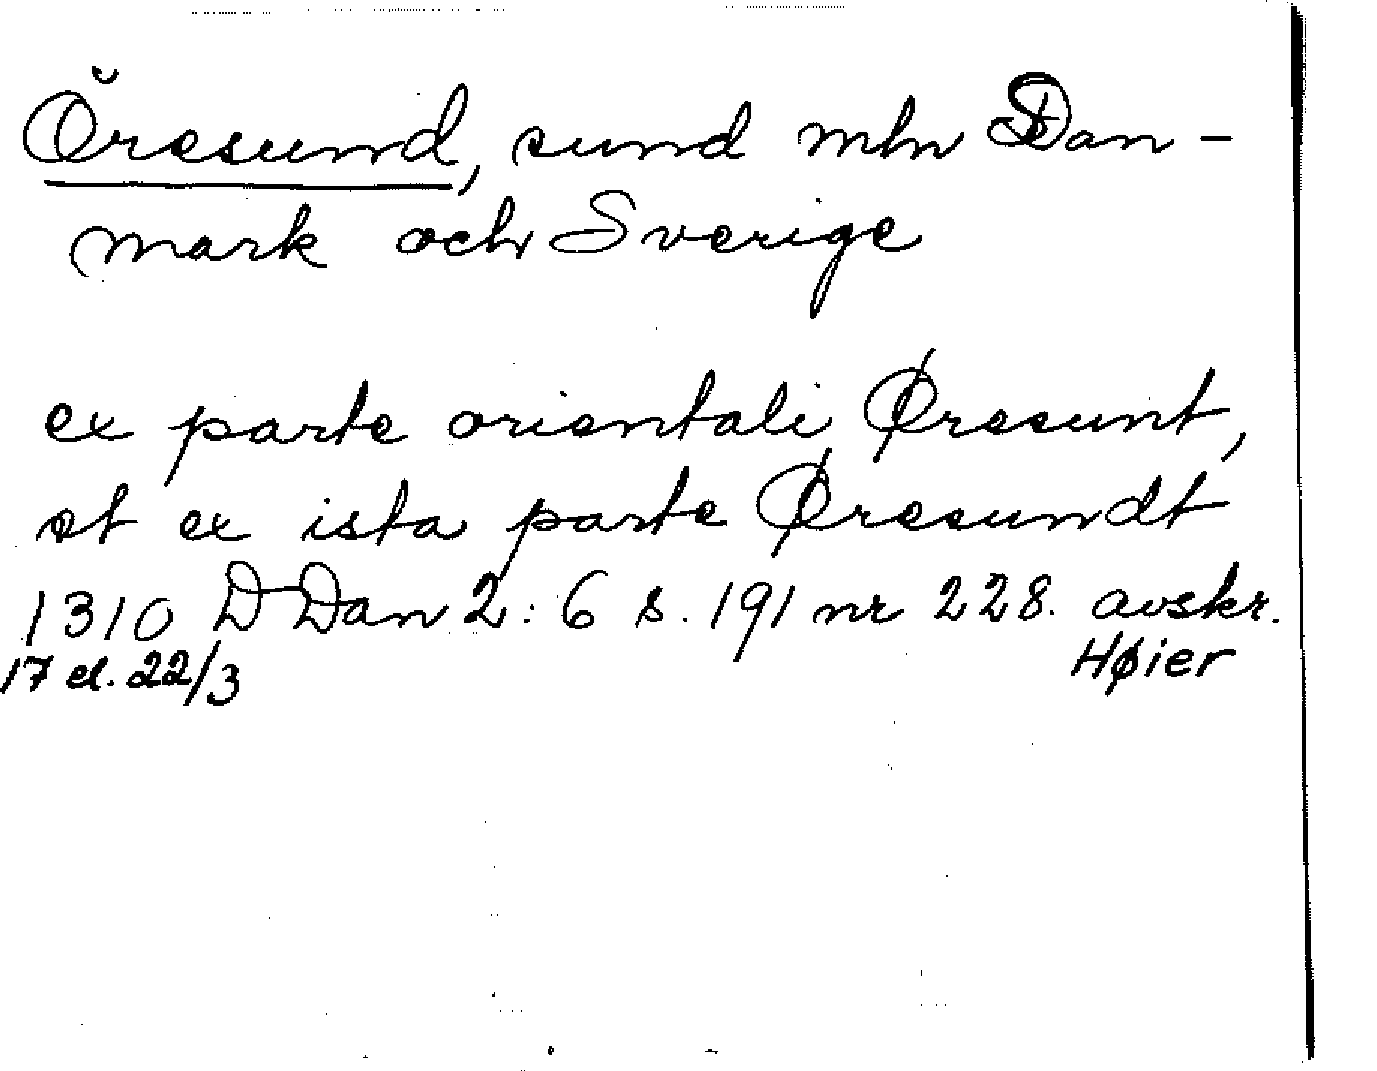 Öresund, sund mln Dan-
mark och Sverige
ex parte orientali Øresunt,
et ex ista parte Øresundt
1310 DDan 2:6 s. 191 nr 228. avskr.
17 el. 22/3 Høier